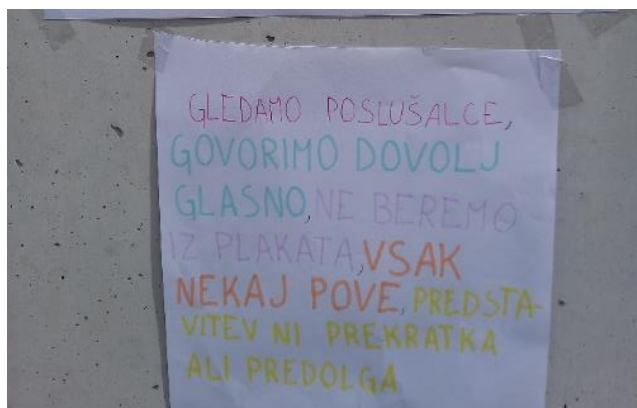 GLEDAMO POSLUŠALCE,
GOVORIMO DOVOLJ
GLASNO, NE BEREMO
IZ PLAKATA, VSAK
NEKAJ POVE, PREDSTA-
VITEV NI PREKRATKA
ALI PREDOLGA